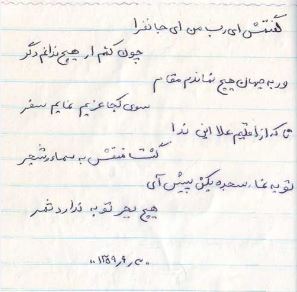 گفتش ای رب من ای جانفزا
چون کنم ار هیچ ندانم دگر
ور به جهان هیچ نماندم مقام
سوی کجا عزیم نمایم سفر
که از اقلیم علا این ندا
گشت به سماء و شجر
توبه نما، سجده بکن پیش آی
هیچ بجز توبه ندارد ثمر
۱۳۵۹٫۹٫۳۰